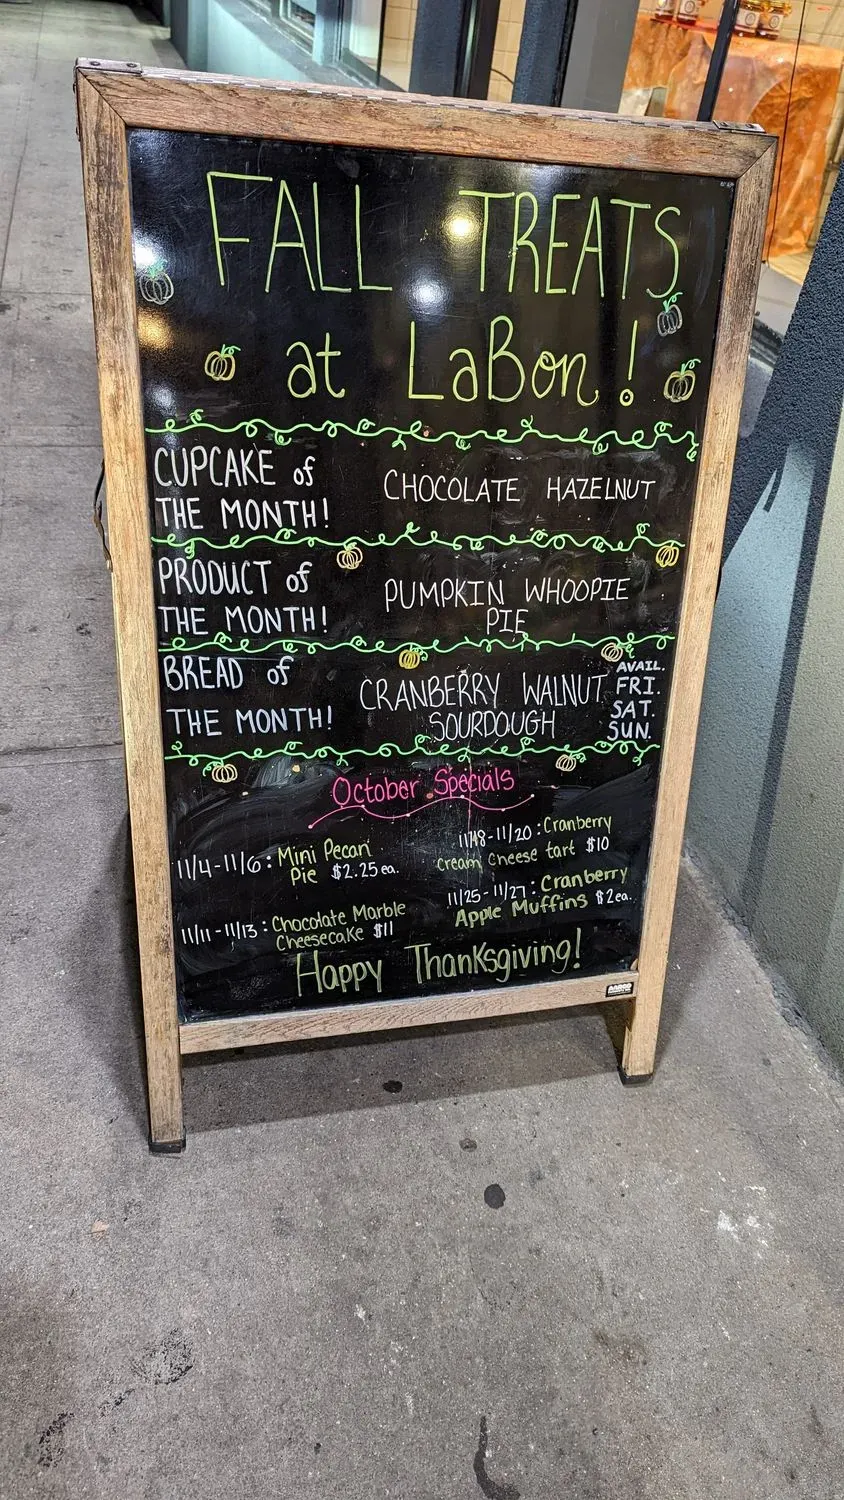 FALL TREATS
at LaBon!
CUPCAKE of
THE MONTH!
CHOCOLATE HAZELNUT
PRODUCT of
THE MONTH!
PUMPKIN WHOOPIE
PIE
BREAD of
THE MONTH!
CRANBERRY WALNUT
SOURDOUGH
AVAIL.
FRI.
SAT.
SUN.
October Specials
11/4-11/6: Mini Pecan
Pie $2.25 ea.
11/11-11/13: Chocolate Marble
Cheesecake $11
11/18-11/20: Cranberry
cream cheese tart $10
11/25-11/27: Cranberry
Apple Muffins $2ea.
Happy Thanksgiving!